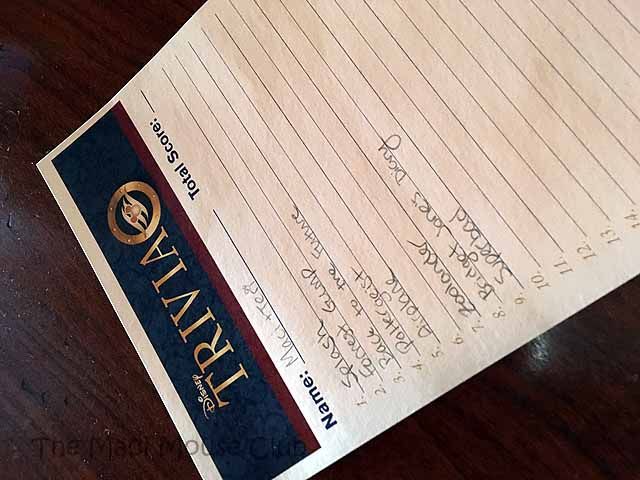 DISNEY
TRIVIA
Name: Total Score:
1. Splash
2. Forrest Gump
3. Back to the Future
4. Poltergeist
5. Airplane
6.
7. Zoolander
8. Bridget Jones Diary
9. Superbad
10.
11.
12.
13.
14.
The Madi Mouse Club